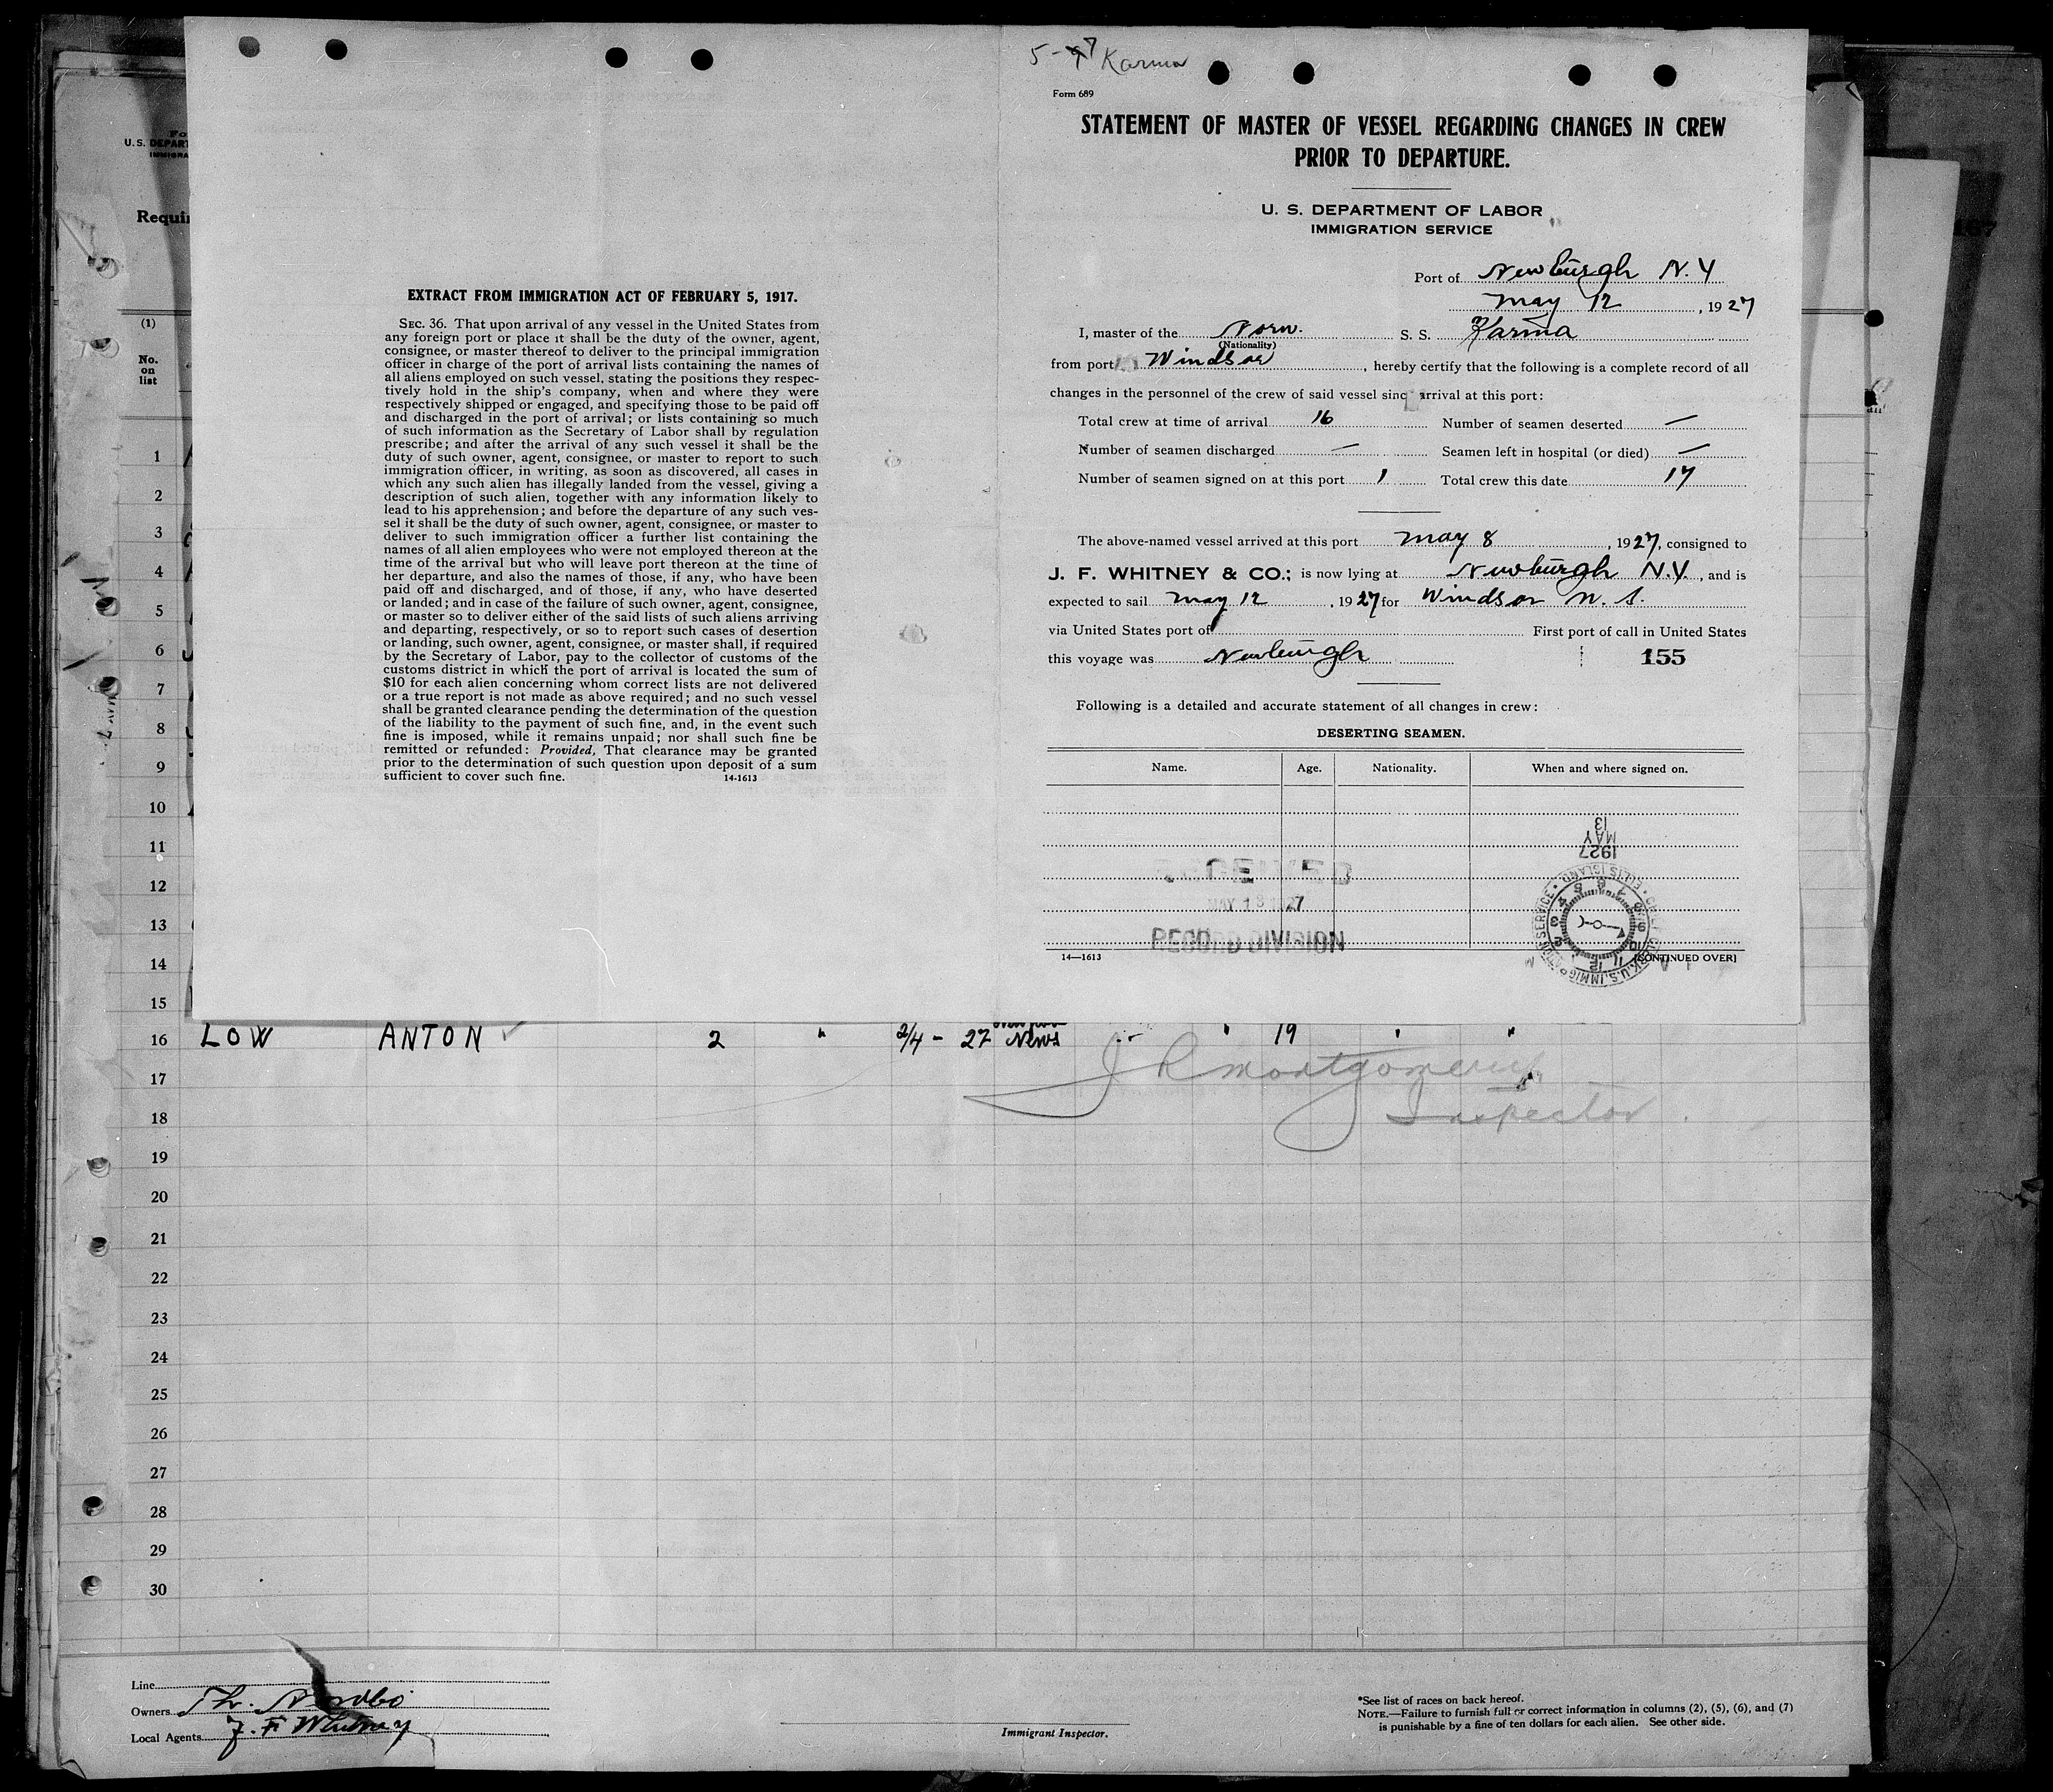 5-7 Karma
Form 689
STATEMENT OF MASTER OF VESSEL REGARDING CHANGES IN CREW
PRIOR TO DEPARTURE.
U. S. DEPARTMENT OF LABOR
IMMIGRATION SERVICE
Port of Newburgh N.Y
May 12, 1927
I, master of the Norw. S. S. Karma
(Nationality)
from port Windsor, hereby certify that the following is a complete record of all
changes in the personnel of the crew of said vessel sinc arrival at this port:
Total crew at time of arrival 16 Number of seamen deserted —
Number of seamen discharged — Seamen left in hospital (or died) —
Number of seamen signed on at this port 1 Total crew this date 17
The above-named vessel arrived at this port May 8, 1927, consigned to
J. F. WHITNEY & CO.; is now lying at Newburgh N.Y., and is
expected to sail May 12, 1927 for Windsor N. S.
via United States port of First port of call in United States
this voyage was Newburgh 155
Following is a detailed and accurate statement of all changes in crew:
DESERTING SEAMEN.
Name. Age. Nationality. When and where signed on.
MAY 13
1927
RECORD DIVISION
14—1613 [CONTINUED OVER]
EXTRACT FROM IMMIGRATION ACT OF FEBRUARY 5, 1917.
SEC. 36. That upon arrival of any vessel in the United States from
any foreign port or place it shall be the duty of the owner, agent,
consignee, or master thereof to deliver to the principal immigration
officer in charge of the port of arrival lists containing the names of
all aliens employed on such vessel, stating the positions they respec-
tively hold in the ship's company, when and where they were
respectively shipped or engaged, and specifying those to be paid off
and discharged in the port of arrival; or lists containing so much
of such information as the Secretary of Labor shall by regulation
prescribe; and after the arrival of any such vessel it shall be the
duty of such owner, agent, consignee, or master to report to such
immigration officer, in writing, as soon as discovered, all cases in
which any such alien has illegally landed from the vessel, giving a
description of such alien, together with any information likely to
lead to his apprehension; and before the departure of any such ves-
sel it shall be the duty of such owner, agent, consignee, or master to
deliver to such immigration officer a further list containing the
names of all alien employees who were not employed thereon at the
time of the arrival but who will leave port thereon at the time of
her departure, and also the names of those, if any, who have been
paid off and discharged, and of those, if any, who have deserted
or landed; and in case of the failure of such owner, agent, consignee,
or master so to deliver either of the said lists of such aliens arriving
and departing, respectively, or so to report such cases of desertion
or landing, such owner, agent, consignee, or master shall, if required
by the Secretary of Labor, pay to the collector of customs of the
customs district in which the port of arrival is located the sum of
$10 for each alien concerning whom correct lists are not delivered
or a true report is not made as above required; and no such vessel
shall be granted clearance pending the determination of the question
of the liability to the payment of such fine, and, in the event such
fine is imposed, while it remains unpaid; nor shall such fine be
remitted or refunded: Provided, That clearance may be granted
prior to the determination of such question upon deposit of a sum
sufficient to cover such fine. 14-1613
(1)
No.
on
list
1
2
3
4
5
6
7
8
9
10
11
12
13
14
15
16 LOW ANTON 2 " 2/4 - 27 News " 19 " "
17 J R Montgomery
18 Inspector
19
20
21
22
23
24
25
26
27
28
29
30
Line
Owners Th.
Local Agents J. F Whitney
Immigrant Inspector.
*See list of races on back hereof.
NOTE.—Failure to furnish full or correct information in columns (2), (5), (6), and (7)
is punishable by a fine of ten dollars for each alien. See other side.